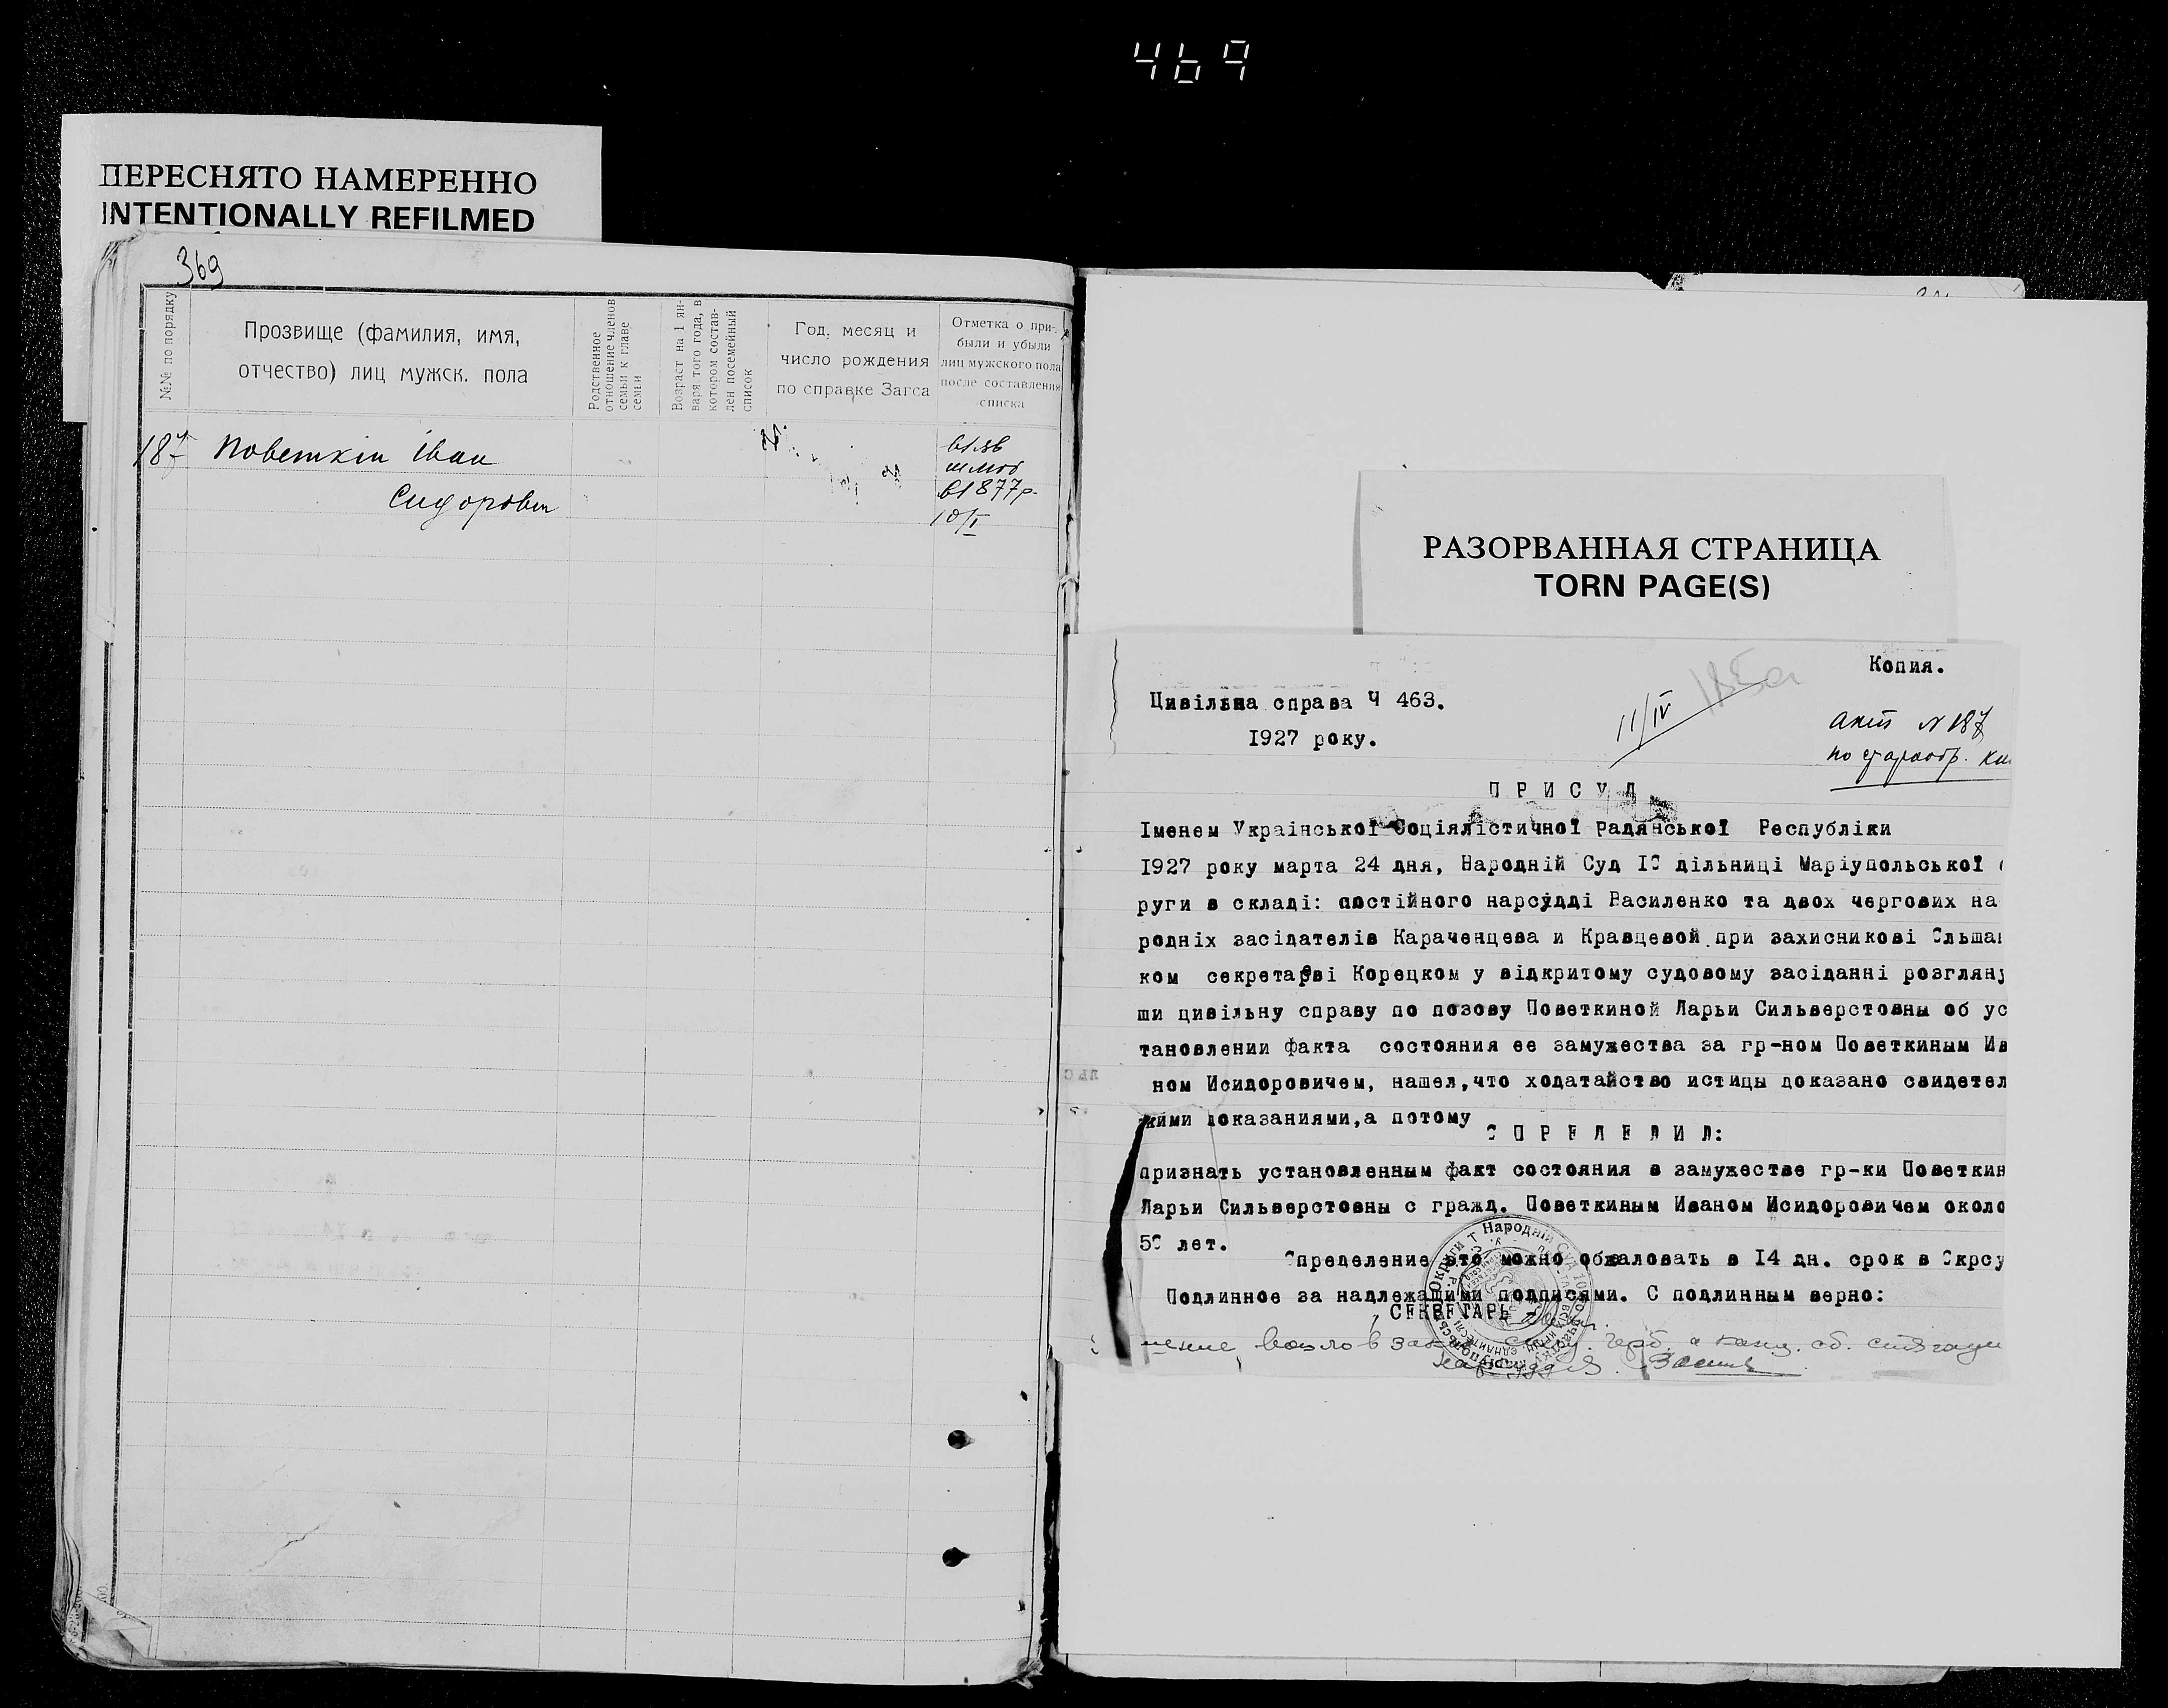 469
ПЕРЕСНЯТО НАМЕРЕННО
INTENTIONALLY REFILMED
369
№№ по порядку
Прозвище (фамилия, имя,
отчество) лиц мужск. пола
Родственное
отношение членов
семьи к главе
семьи
Возраст на 1 ян-
варя того года, в
котором состав-
лен посемейный
список
Год, месяц и
число рождения
по справке Загса
Отметка о при-
были и убыли
лиц мужского пола
после составления
списка
187 Поветкін Іван
Сидорович
шлюб
в 1877 р.
10/I
РАЗОРВАННАЯ СТРАНИЦА
TORN PAGE(S)
Копия.
Цивільна справа Ч 463.
1927 року.
11/IV
акт N 187
по старообр. кн
П Р И С У Д
Іменем Української Соціялістичної Радянської Республіки
1927 року марта 24 дня, Народній Суд 10 дільниці Маріупольської о
руги в складі: постійного нарсудді Василенко та двох чергових на
родніх засідателів Караченцева и Кравцевой при захисникові Ольшан
ком секретареві Корецком у відкритому судовому засіданні розгляну
ши цивільну справу по позову Поветкиной Дарьи Сильверстовны об ус
тановлении факта состояния ее замужества за гр-ном Поветкиным Ив
ном Исидоровичем, нашел,что ходатайство истицы доказано свидетел
кими показаниями,а потому
О П Р Е Д Е Л И Л:
признать установленным факт состояния в замужестве гр-ки Поветкин
Дарьи Сильверстовны с гражд. Поветкиным Иваном Исидоровичем около
50 лет.
Определение это можно обжаловать в 14 дн. срок в Окрсу
Подлинное за надлежащими подписями. С подлинным верно:
СЕКРЕТАРЬ
Народній Суд 10